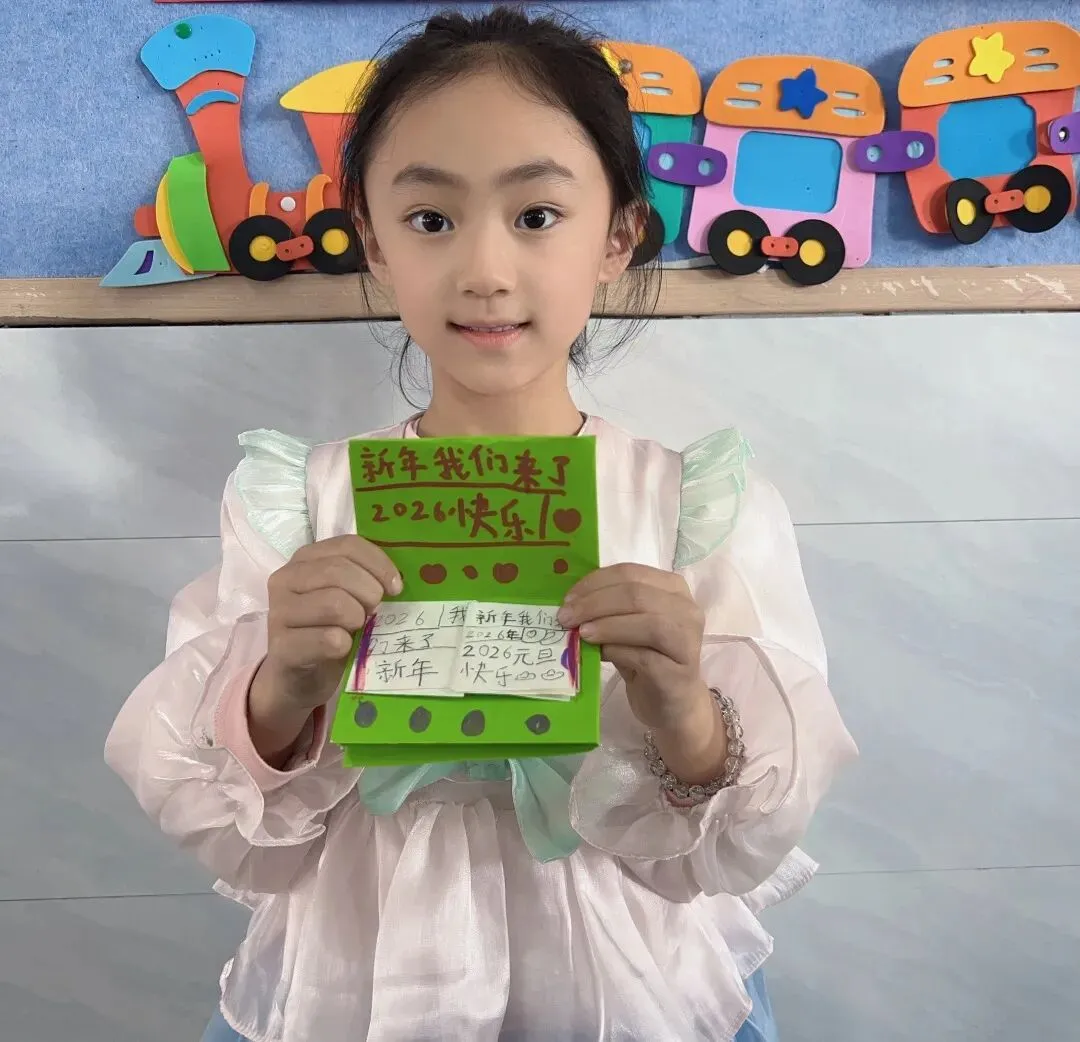 新年我们来了
2026快乐
2026 我
们来了
新年
新年我们
2026年
2026元旦
快乐